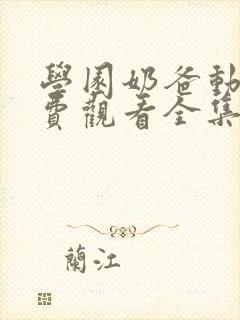 學園奶爸動
費觀看全集
蘭江